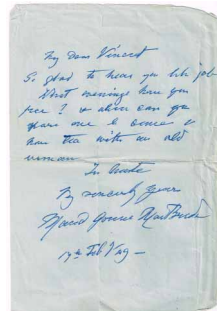 My Dear Vincent
So glad to hear you like job
What evenings have you
free? & also can you
spare one & come &
have tea with an old
woman
In haste
Yrs sincerely yours
Maud Gonne MacBride